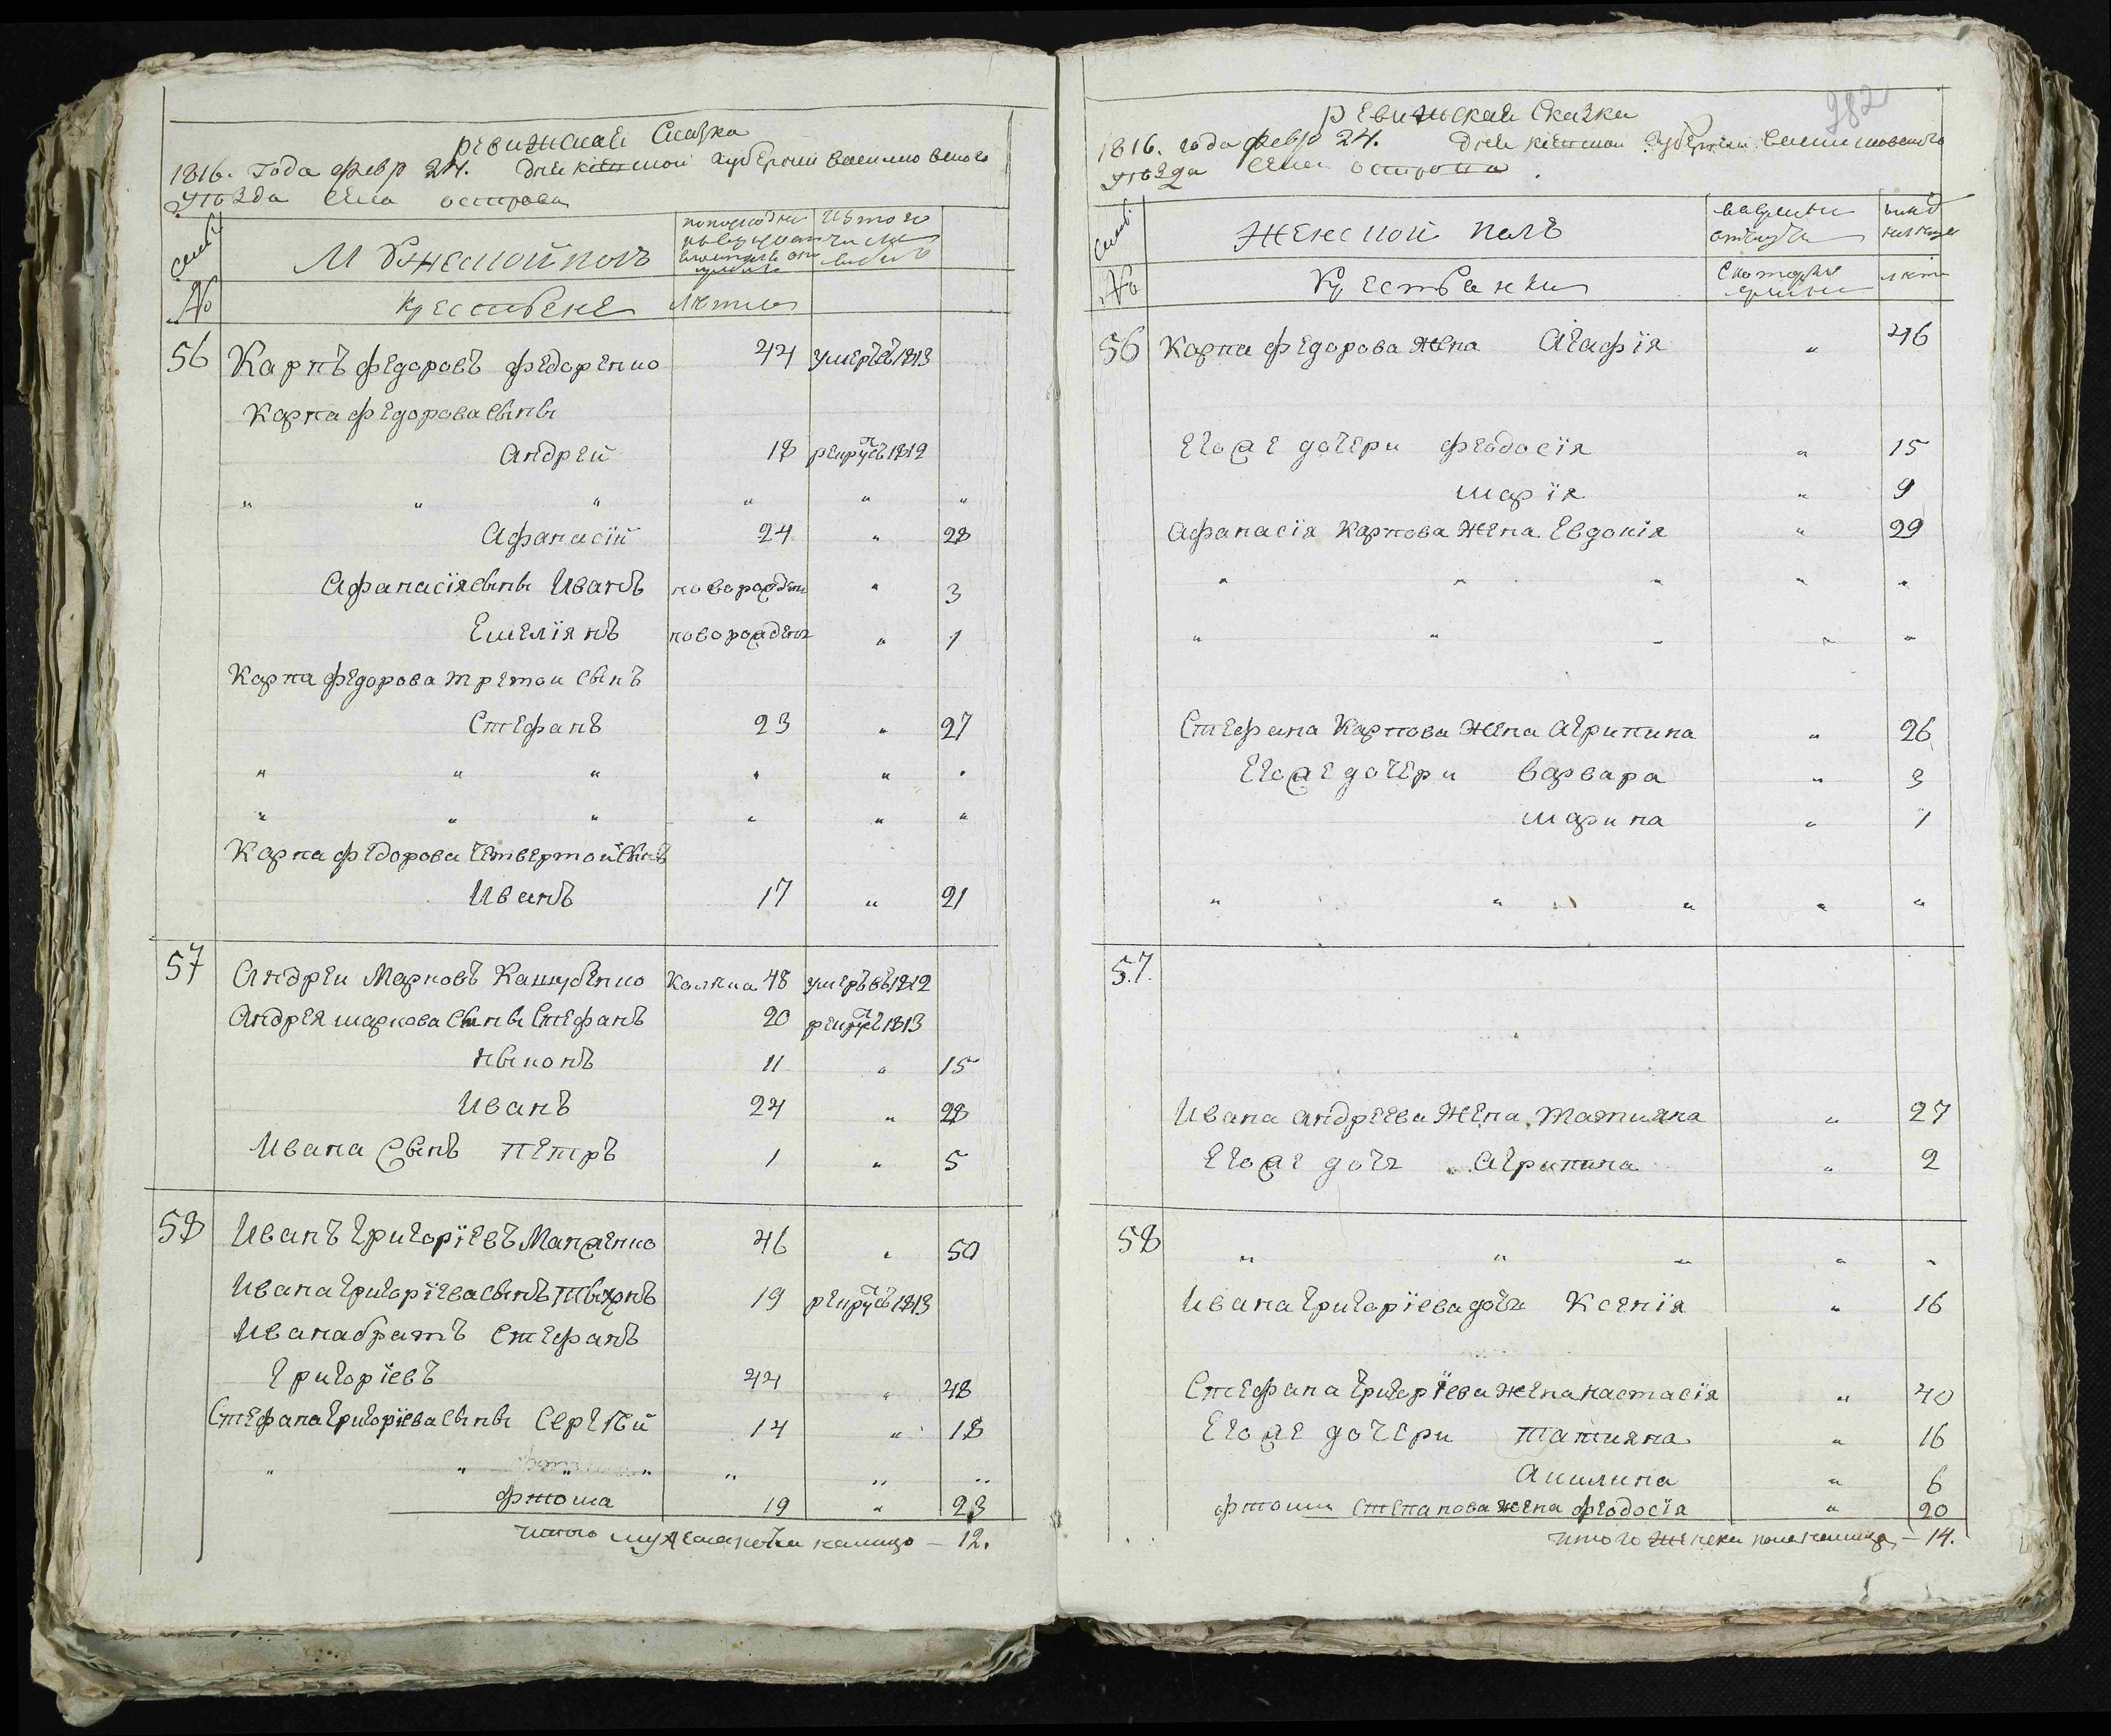 ревижская Сказка
1816. года февр 24. Дня киевской губернии василковского
уезда села острова
семьи
Мужеской полъ
Из того числа
№
Крестьяне
Лета
56 Карпъ федоровъ федоренко 44 умеръ въ 1813
Карпа федорова сыны
Андрей 18 рекрут въ 1812
" " " " " "
Афанасій 24 " 28
Афанасія сыны Иванъ новорожден " 3
Емеліянъ новорожден " 1
Карпа федорова третои сынъ
Стефанъ 23 " 27
" " " " " "
" " " " " "
Карпа федорова четвертой сынъ
Иванъ 17 " 21
57 Андреи Марковъ Кашубенко Калѣка 48 умеръ въ 1812
Андрея маркова сыны Стефанъ 20 рекрут въ 1813
Ныконъ 11 " 15
Иванъ 24 " 28
Ивана сынъ Петръ 1 " 5
58 Иванъ григоріевъ Манженко 46 " 50
Ивана григоріева сынъ Тыхонъ 19 рекрут въ 1813
Ивана братъ Стефанъ
григоріевъ 44 " 48
Стефана григоріева сыны Сергѣй 14 " 18
" " " " " " "
фтома 19 " 23
Итого мужеска пола налицо – 12.
282
ревижская Сказка
1816. года февр 24. Дня киевской губернии василковского
уезда села острова
семьи
Женской полъ
№
Крестьянки
лета
56 Карпа федорова жена Агафія " 46
Его же дочери феодосія " 15
марія " 9
Афанасія Карпова жена Евдокія " 29
" " " " "
" " " " "
Стефана Карпова жена Агрипина " 26
Его же дочери варвара " 3
марина " 1
" " " " "
57.
Ивана андреева жена Татияна " 27
Его же дочь Агрипина " 2
58 " " " " "
Ивана григоріева дочь Ксенія " 16
Стефана григоріева жена настасія " 40
Его же дочери Татияна " 16
Акилина " 6
фтомы Степанова жена феодосія " 20
Итого женска пола налицо – 14.